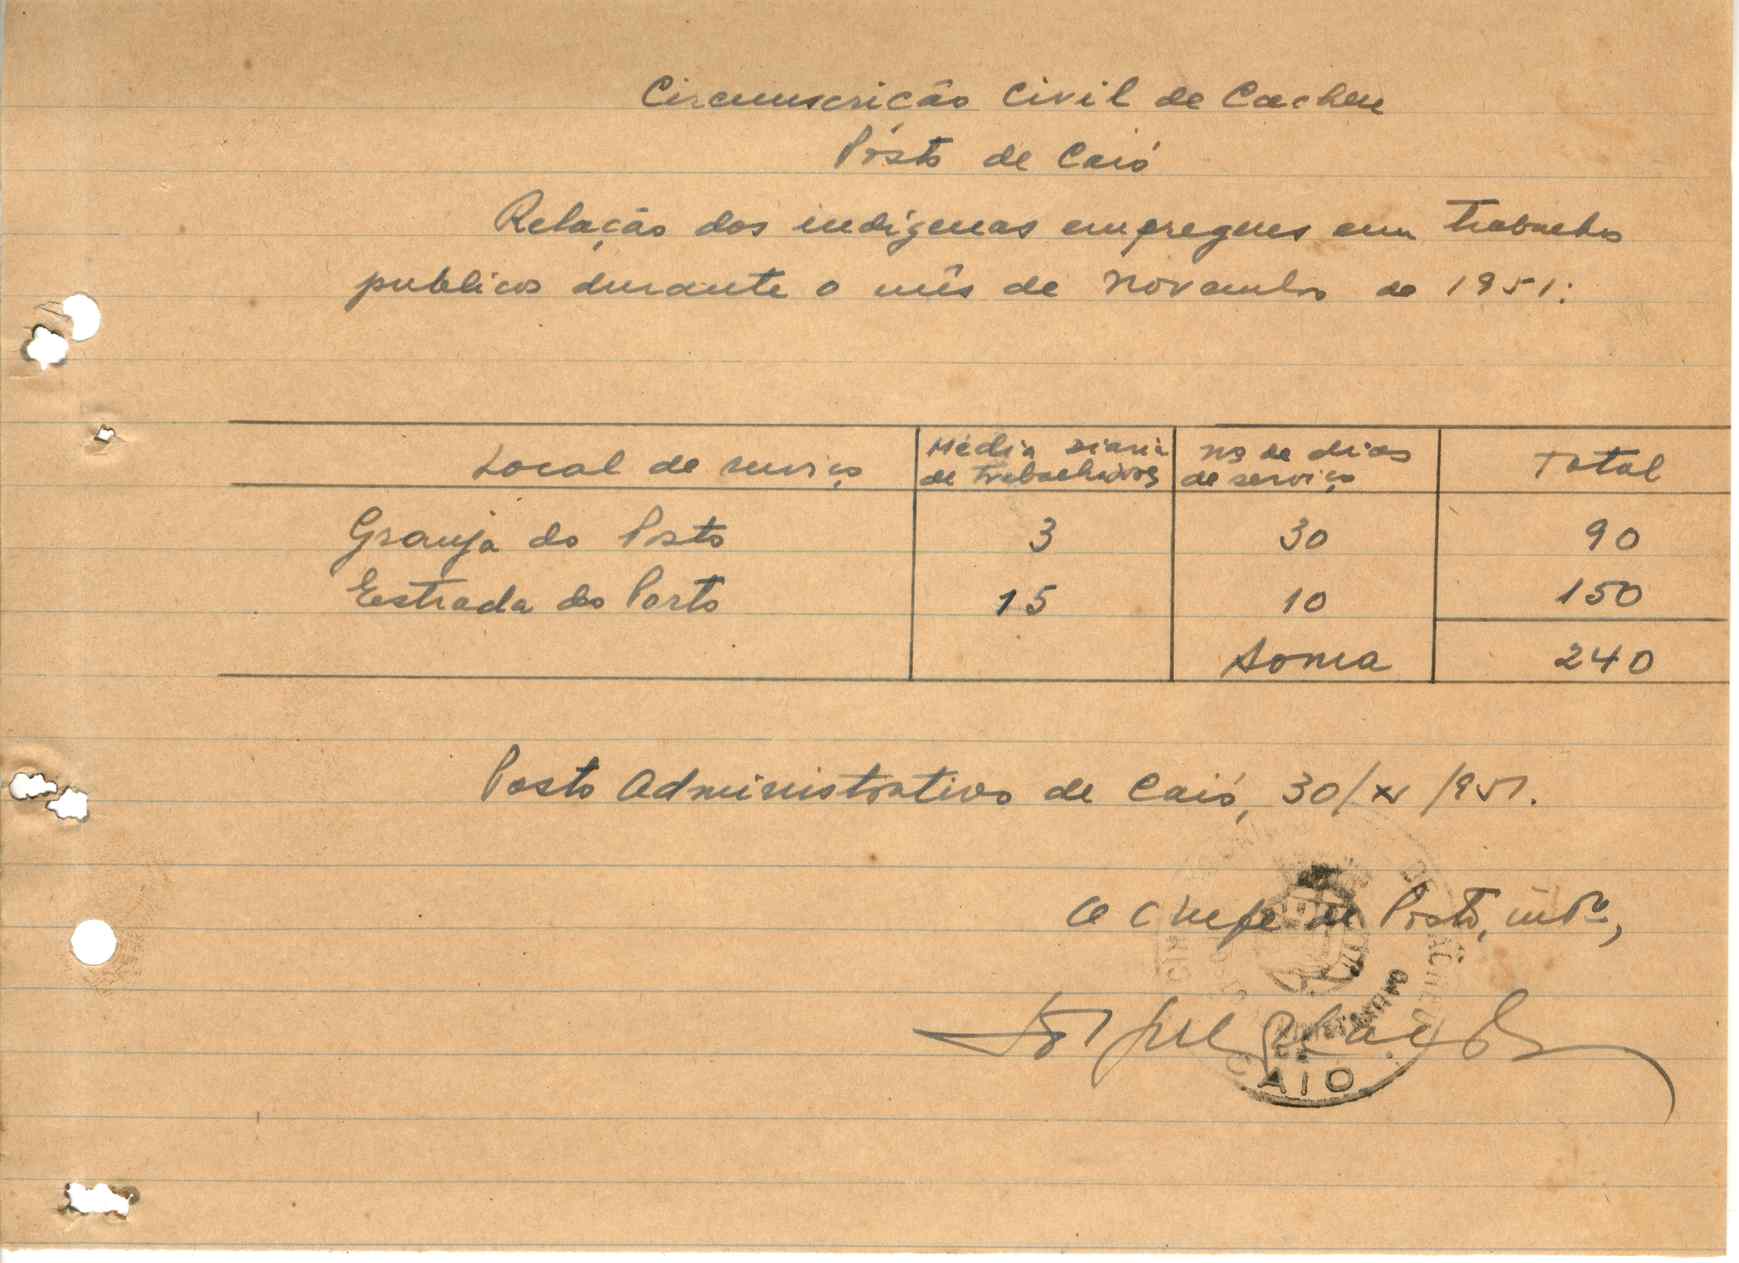 Circunscrição Civil de Cacheu
Pôsto de Caió
Relação dos indígenas empregues em trabalhos
publicos durante o mês de Novembro de 1951:
Local de serviço Média Diaria de trabalhadores Nº de dias de serviço Total
Granja do Posto 3 30 90
Estrada do Porto 15 10 150
Soma 240
Posto Administrativo de Caió, 30/XI/951.
O Chefe de Posto, intº,
CAIO